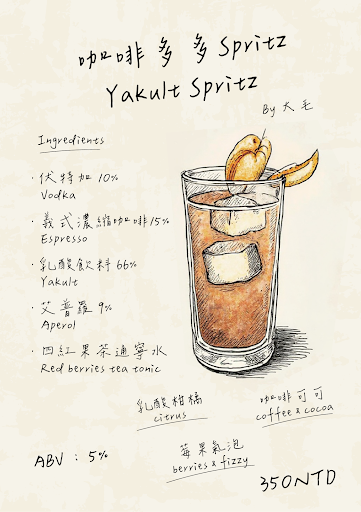 咖啡多多Spritz
Yakult Spritz
By 大毛
Ingredients
· 伏特加 10%
Vodka
· 義式濃縮咖啡 15%
Espresso
· 乳酸飲料 66%
Yakult
· 艾普羅 9%
Aperol
· 四紅果茶通寧水
Red berries tea tonic
乳酸柑橘
citrus
咖啡可可
coffee x cocoa
莓果氣泡
berries x fizzy
ABV : 5%
350NTD